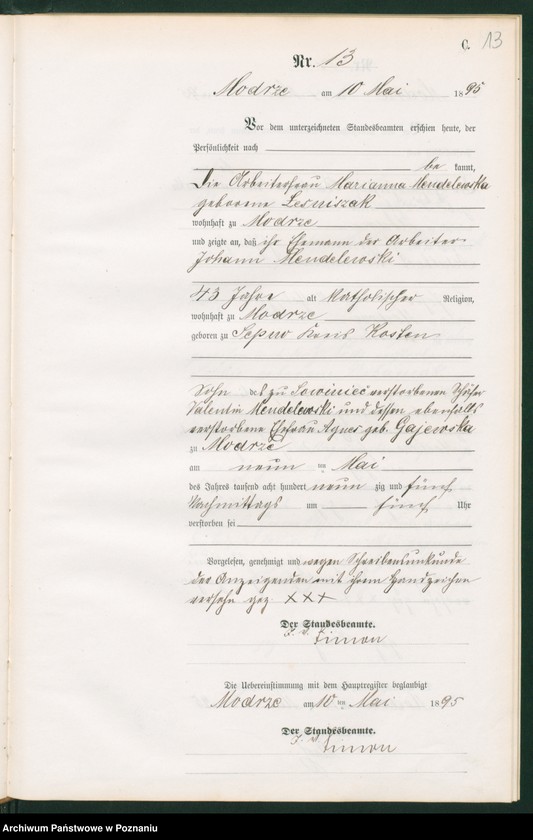 C. 13
Nr. 13
Modrze am 10 Mai 1895
Vor dem unterzeichneten Standesbeamten erschien heute, der
Persönlichkeit nach
be kannt,
Die Arbeiterfrau Marianna Mendelewska
geborene Lesniszak
wohnhaft zu Modrze
und zeigte an, daß ihr Ehemann der Arbeiter
Johann Mendelewski
43 Jahre alt Katholischer Religion,
wohnhaft zu Modrze
geboren zu Sepno Kreis Kosten
Sohn des zu Sowiniec verstorbenen Schäfer
Valentin Mendelewski und dessen ebenfalls
verstorbene Ehefrau Agnes geb. Gajewska
zu Modrze
am neun ten Mai
des Jahres tausend acht hundert neun zig und fünf
Nachmittags um fünf Uhr
verstorben sei
Vorgelesen, genehmigt und wegen Schreibensunkunde
der Anzeigenden mit ihrem Handzeichen
versehn gez. XXX
Der Standesbeamte.
I. V. Simon
Die Uebereinstimmung mit dem Hauptregister beglaubigt
Modrze am 10 ten Mai 1895
Der Standesbeamte.
I. V. Simon
Archiwum Państwowe w Poznaniu